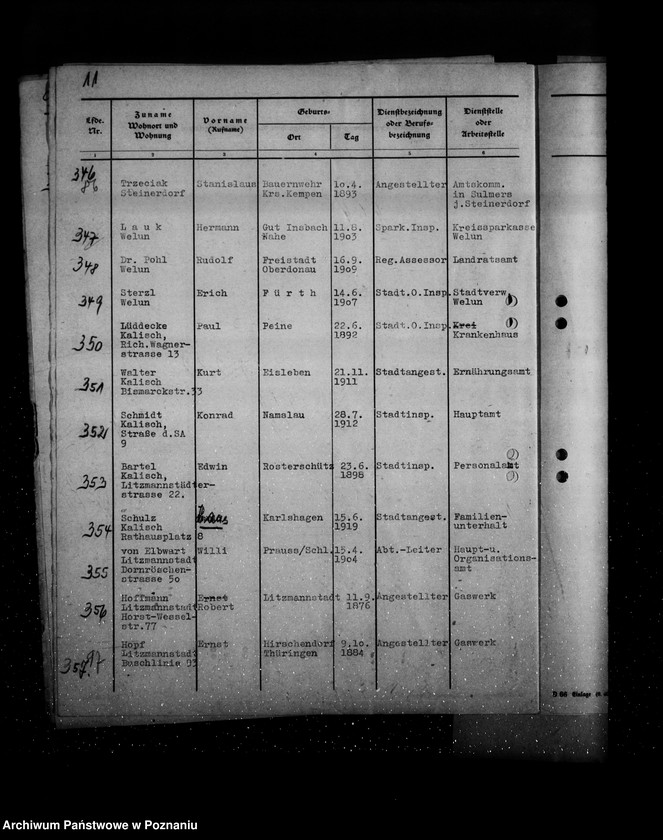 11
Lfde. Nr.
Zuname Wohnort und Wohnung
Vorname (Rufname)
Geburts-
Ort
Tag
Dienstbezeichnung oder Berufs-bezeichnung
Dienststelle oder Arbeitsstelle
1 2 3 4 5 6
346 Trzeciak Stanislaus Bauernwehr 10.4. Angestellter Amtskomm.
86 Steinerdorf Krs.Kempen 1893 in Sulmers
j.Steinerdorf
Lauk Hermann Gut Insbach 11.8. Spark.Insp. Kreissparkasse
347 Welun Nahe 1903 Welun
Dr. Pohl Rudolf Freistadt 16.9. Reg.Assessor Landratsamt
348 Welun Oberdonau 1909
Sterzl Erich Fürth 14.6. Stadt.O.Insp. Stadtverw.
349 Welun 1907 Welun
Lüddecke Paul Peine 22.6. Stadt.O.Insp. Krei
Kalisch, 1892 Krankenhaus
350 Rich.Wagner-
strasse 13
Walter Kurt Eisleben 21.11. Stadtangest. Ernährungsamt
351 Kalisch 1911
Bismarckstr.33
Schmidt Konrad Namslau 28.7. Stadtinsp. Hauptamt
Kalisch, 1912
352 Straße d.SA
9
Bartel Edwin Rosterschütz 23.6. Stadtinsp. Personalamt
Kalisch, 1898
353 Litzmannstädter-
strasse 22.
Schulz Karlshagen 15.6. Stadtangest. Familien-
354 Kalisch 1919 unterhalt
Rathausplatz 8
von Elbwart Willi Prauss/Schl. 15.4. Abt.-Leiter Haupt-u.
Litzmannstadt 1904 Organisations-
355 Dornröschen- amt
strasse 50
Hoffmann Ernst Litzmannstadt 11.9. Angestellter Gaswerk
356 Litzmannstadt Robert 1876
Horst-Wessel-
str.77
Hopf Ernst Hirschendorf 9.10. Angestellter Gaswerk
357 97 Litzmannstadt Thüringen 1884
Buschlinie 93
D 66 Einlage
Archiwum Państwowe w Poznaniu